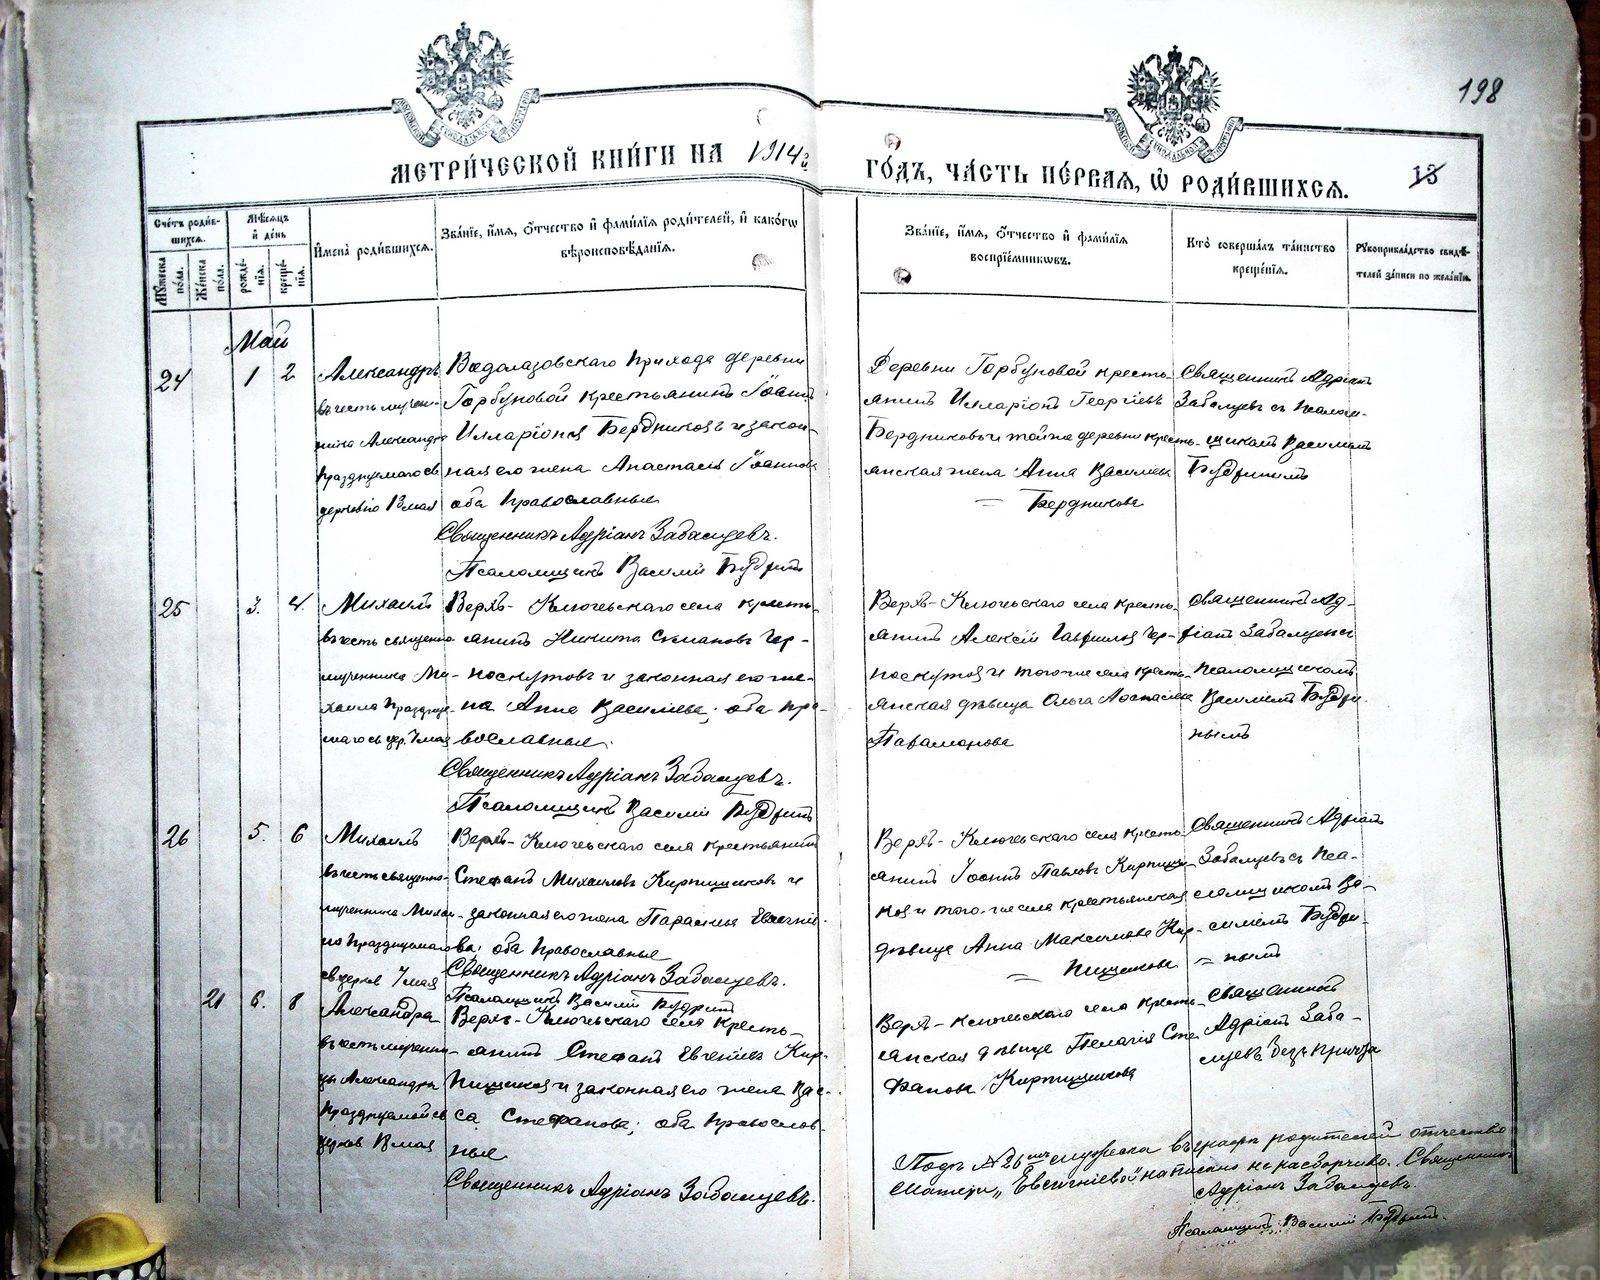 198
МЕТРИ́ЧЕСКОЙ КНИ́ГИ НА 1914 й ГО́ДЪ, ЧА́СТЬ ПЕ́РВАЯ, Ѡ РОДИ́ВШИХСЯ.
13
Сче́тъ роди́вшихся.
Му́жеска по́ла.
Же́нска по́ла.
Мѣ́сяцъ и҆ де́нь
рожде́нїя.
креще́нїя.
И҆мена̀ роди́вшихся.
Зва́нїе, и҆́мя, ѻ҆́тчество и҆ фами́лїя роди́телей, и҆ како́гѡ
вѣроисповѣ́данїя.
Зва́нїе, и҆́мя, ѻ҆́тчество и҆ фами́лїя
воспрїе́мникѡвъ.
Кто̀ соверша́лъ та́инство
креще́нїя.
Рꙋкоприкла́дство свидѣ́-
телей за́писи по жела́нїю.
Май
24 1 2
Александръ
въ честь мучен-
ника Александра
празднуемаго св.
церковію 13 мая
Водолазовскаго прихода деревни
Горбуновой крестьянинъ Іоаннъ
Илларіоновъ Бердниковъ и закон-
ная его жена Анастасія Іоаннова
оба православные
Священникъ Адріанъ Забалуевъ.
Псаломщикъ Василій Будринъ
Деревни Горбуновой кресть-
янинъ Илларіонъ Георгіевъ
Бердниковъ и той же деревни кресть-
янская жена Анна Васильева
= Бердникова
Священникъ Адріанъ
Забалуевъ съ псалом-
щикомъ Василіемъ
Будринымъ
25 3. 4.
Михаилъ
въ честь священно-
мученника Ми-
хаила празднуе-
маго св. цер. 7 мая
Верхъ-Ключевскаго села кресть-
янинъ Никита Степановъ Чер-
носкутовъ и законная его же-
на Анна Васильева; оба пра-
вославные.
Священникъ Адріанъ Забалуевъ.
Псаломщикъ Василій Будринъ
Верхъ-Ключевскаго села кресть-
янинъ Алексій Гавриловъ Чер-
носкутовъ и того же села кресть-
янская дѣвица Ольга
Парамонова
Священникъ Ад-
ріанъ Забалуевъ съ
псаломщикомъ
Василіемъ Будри-
нымъ
26 5. 6
Михаилъ
въ честь священно-
мученника Михаи-
ла празднуемаго
св. церков. 7 мая
Верхъ-Ключевскаго села крестьянинъ
Стефанъ Михаиловъ Кирпищиковъ и
законная его жена Параскева Евгеніе-
ва; оба православные
Священникъ Адріанъ Забалуевъ.
Псаломщикъ Василій Будринъ
Верхъ-Ключевскаго села кресть-
янинъ Іоаннъ Павловъ Кирпищи-
ковъ и того-же села крестьянская
дѣвица Анна Максимова Кир-
= пищикова
Священникъ Адріанъ
Забалуевъ съ Пса-
ломщикомъ Ва-
силіемъ Будри-
= нымъ
21 6. 8
Александра
въ честь мучени-
цы Александры
празднуемой св.
церков. 13 мая
Верхъ-Ключевскаго села кресть-
янинъ Стефанъ Евгеніевъ Кир-
пищиковъ и законная его жена Вас-
са Стефанова; оба православ-
ные
Священникъ Адріанъ Забалуевъ.
Верхъ-Ключевскаго села кресть-
янская дѣвица Пелагія Сте-
фанова Кирпищикова
Священникъ
Адріанъ Заба-
луевъ безъ причта
Подъ № 26 мужска въ графѣ родителей отчество
матери „Евгеніевой" написано не разборчиво. Священникъ
Адріанъ Забалуевъ.
Псаломщикъ Василій Будринъ.